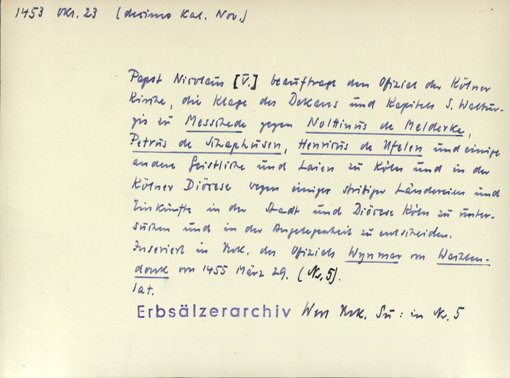 1453 Okt. 23 (decimo Kal. Nov.)
Papst Nicolaus [V.] beauftragt den Offizial der Kölner
Kirche, die Klage des Dekans und Kapitels S. Walbur-
gis zu Meschede gegen Nolthinus de Melderke,
Petrus de Schaphusen, Henricus de Ufelen und einige
andere Geistliche und Laien zu Köln und in der
Kölner Diözese wegen einiger strittiger Ländereien und
Einkünfte in der Stadt und Diözese Köln zu unter-
suchen und in der Angelegenheit zu entscheiden.
Inseriert in Urk. des Offizials Wynmar von Wachten-
donk von 1455 März 29. (Nr. 5).
lat.
Erbsälzerarchiv Werl Urk. Su: in Nr. 5